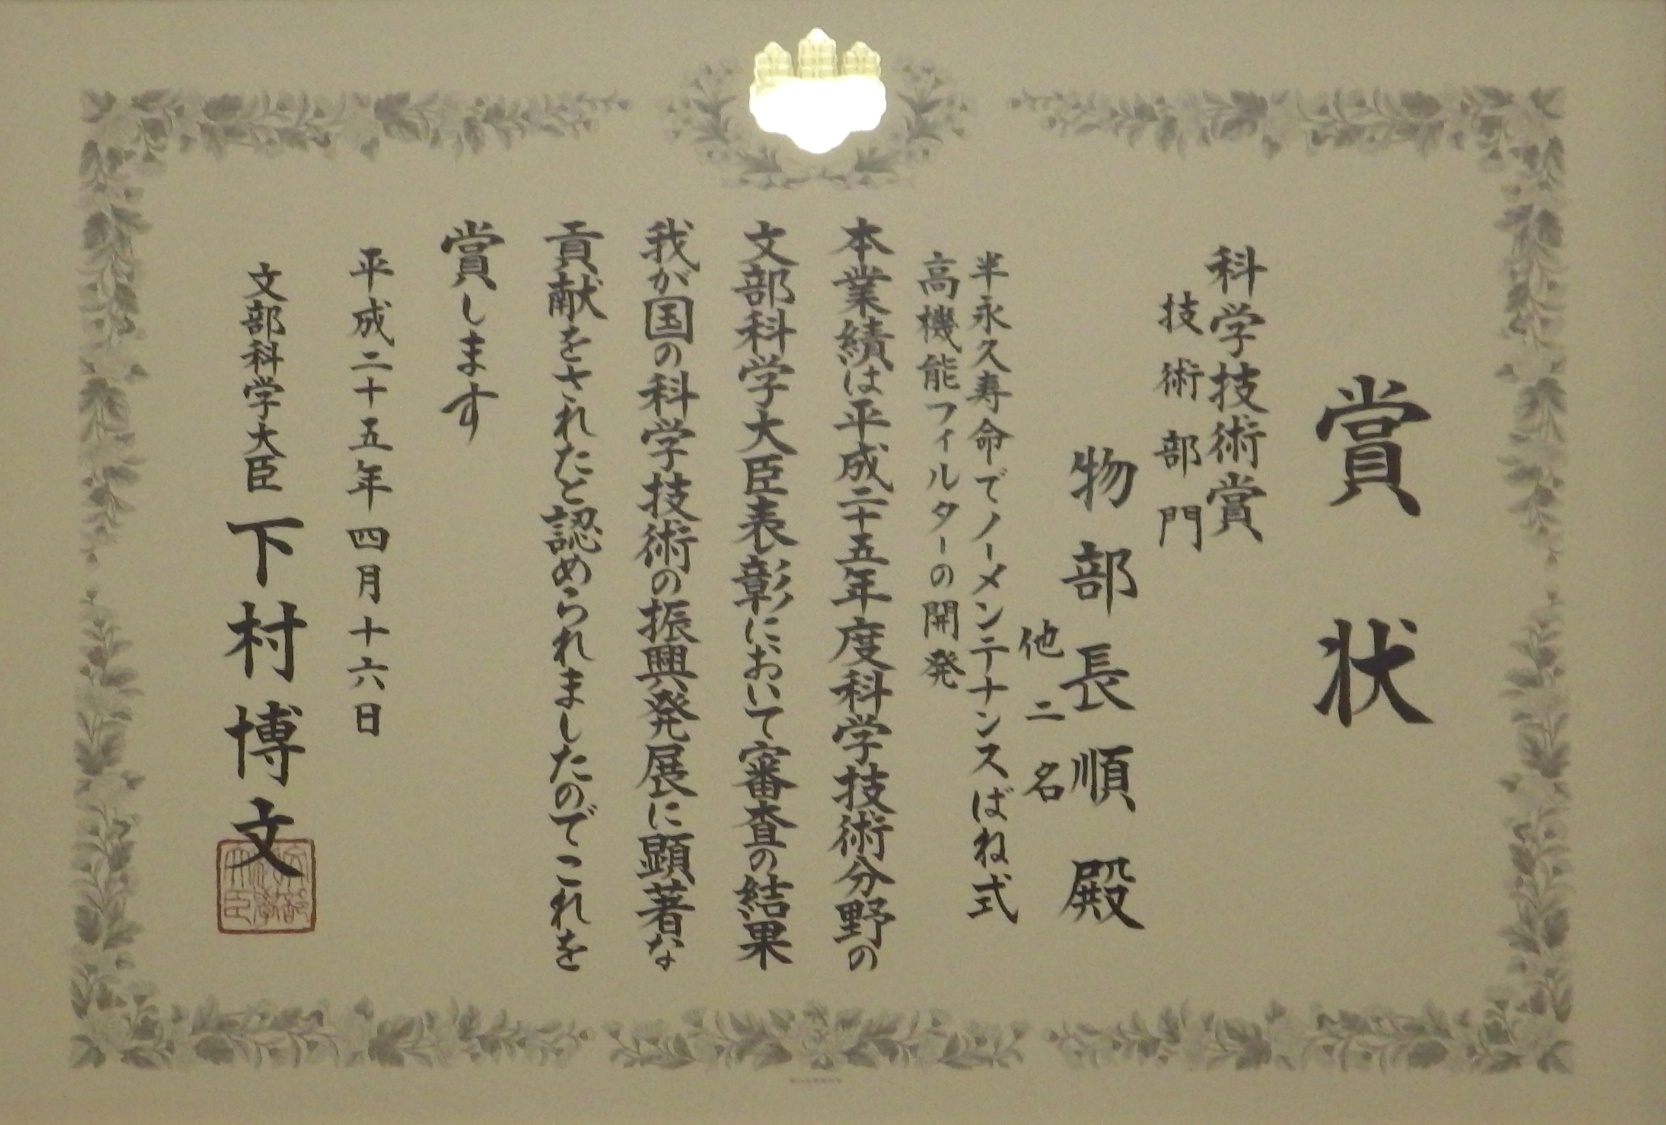 賞状
科学技術賞
技術部門
物部長順殿
他二名
半永久寿命でノーメンテナンスばね式
高機能フィルターの開発
本業績は平成二十五年度科学技術分野の
文部科学大臣表彰において審査の結果
我が国の科学技術の振興発展に顕著な
貢献をされたと認められましたのでこれを
賞します
平成二十五年四月十六日
文部科学大臣 下村博文